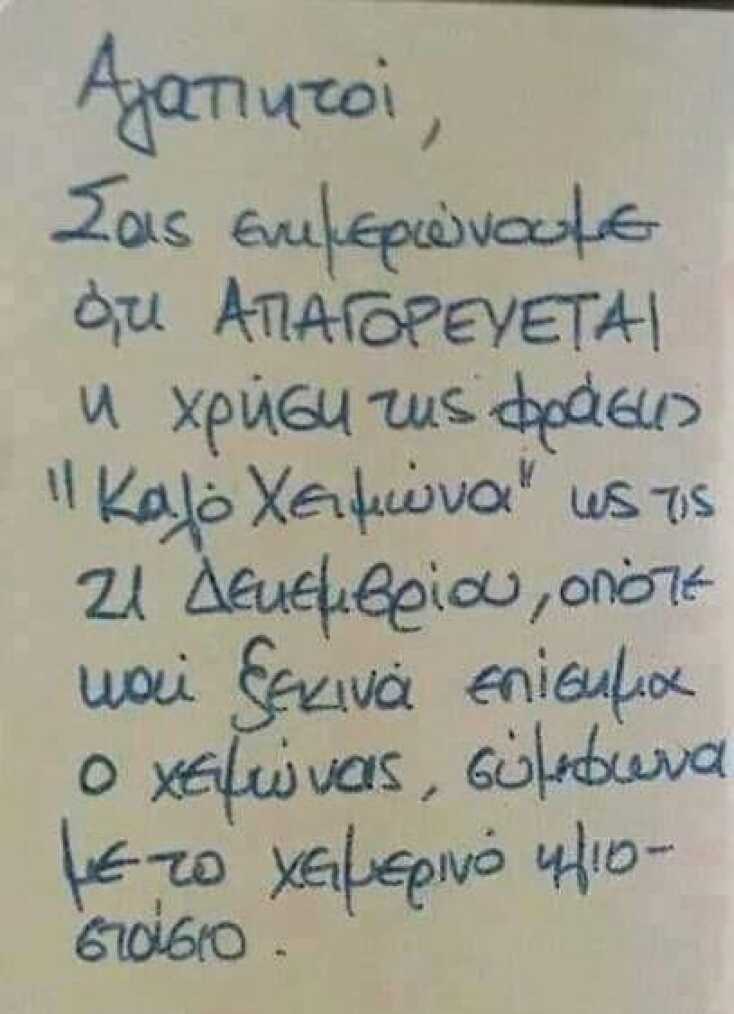 Αγαπητοί,
Σας ενημερώνουμε
ότι ΑΠΑΓΟΡΕΥΕΤΑΙ
η χρήση της φράσης
"Καλό Χειμώνα" ως τις
21 Δεκεμβρίου, οπότε
και ξεκινά επίσημα
ο χειμώνας, σύμφωνα
με το χειμερινό ηλιο-
στάσιο.